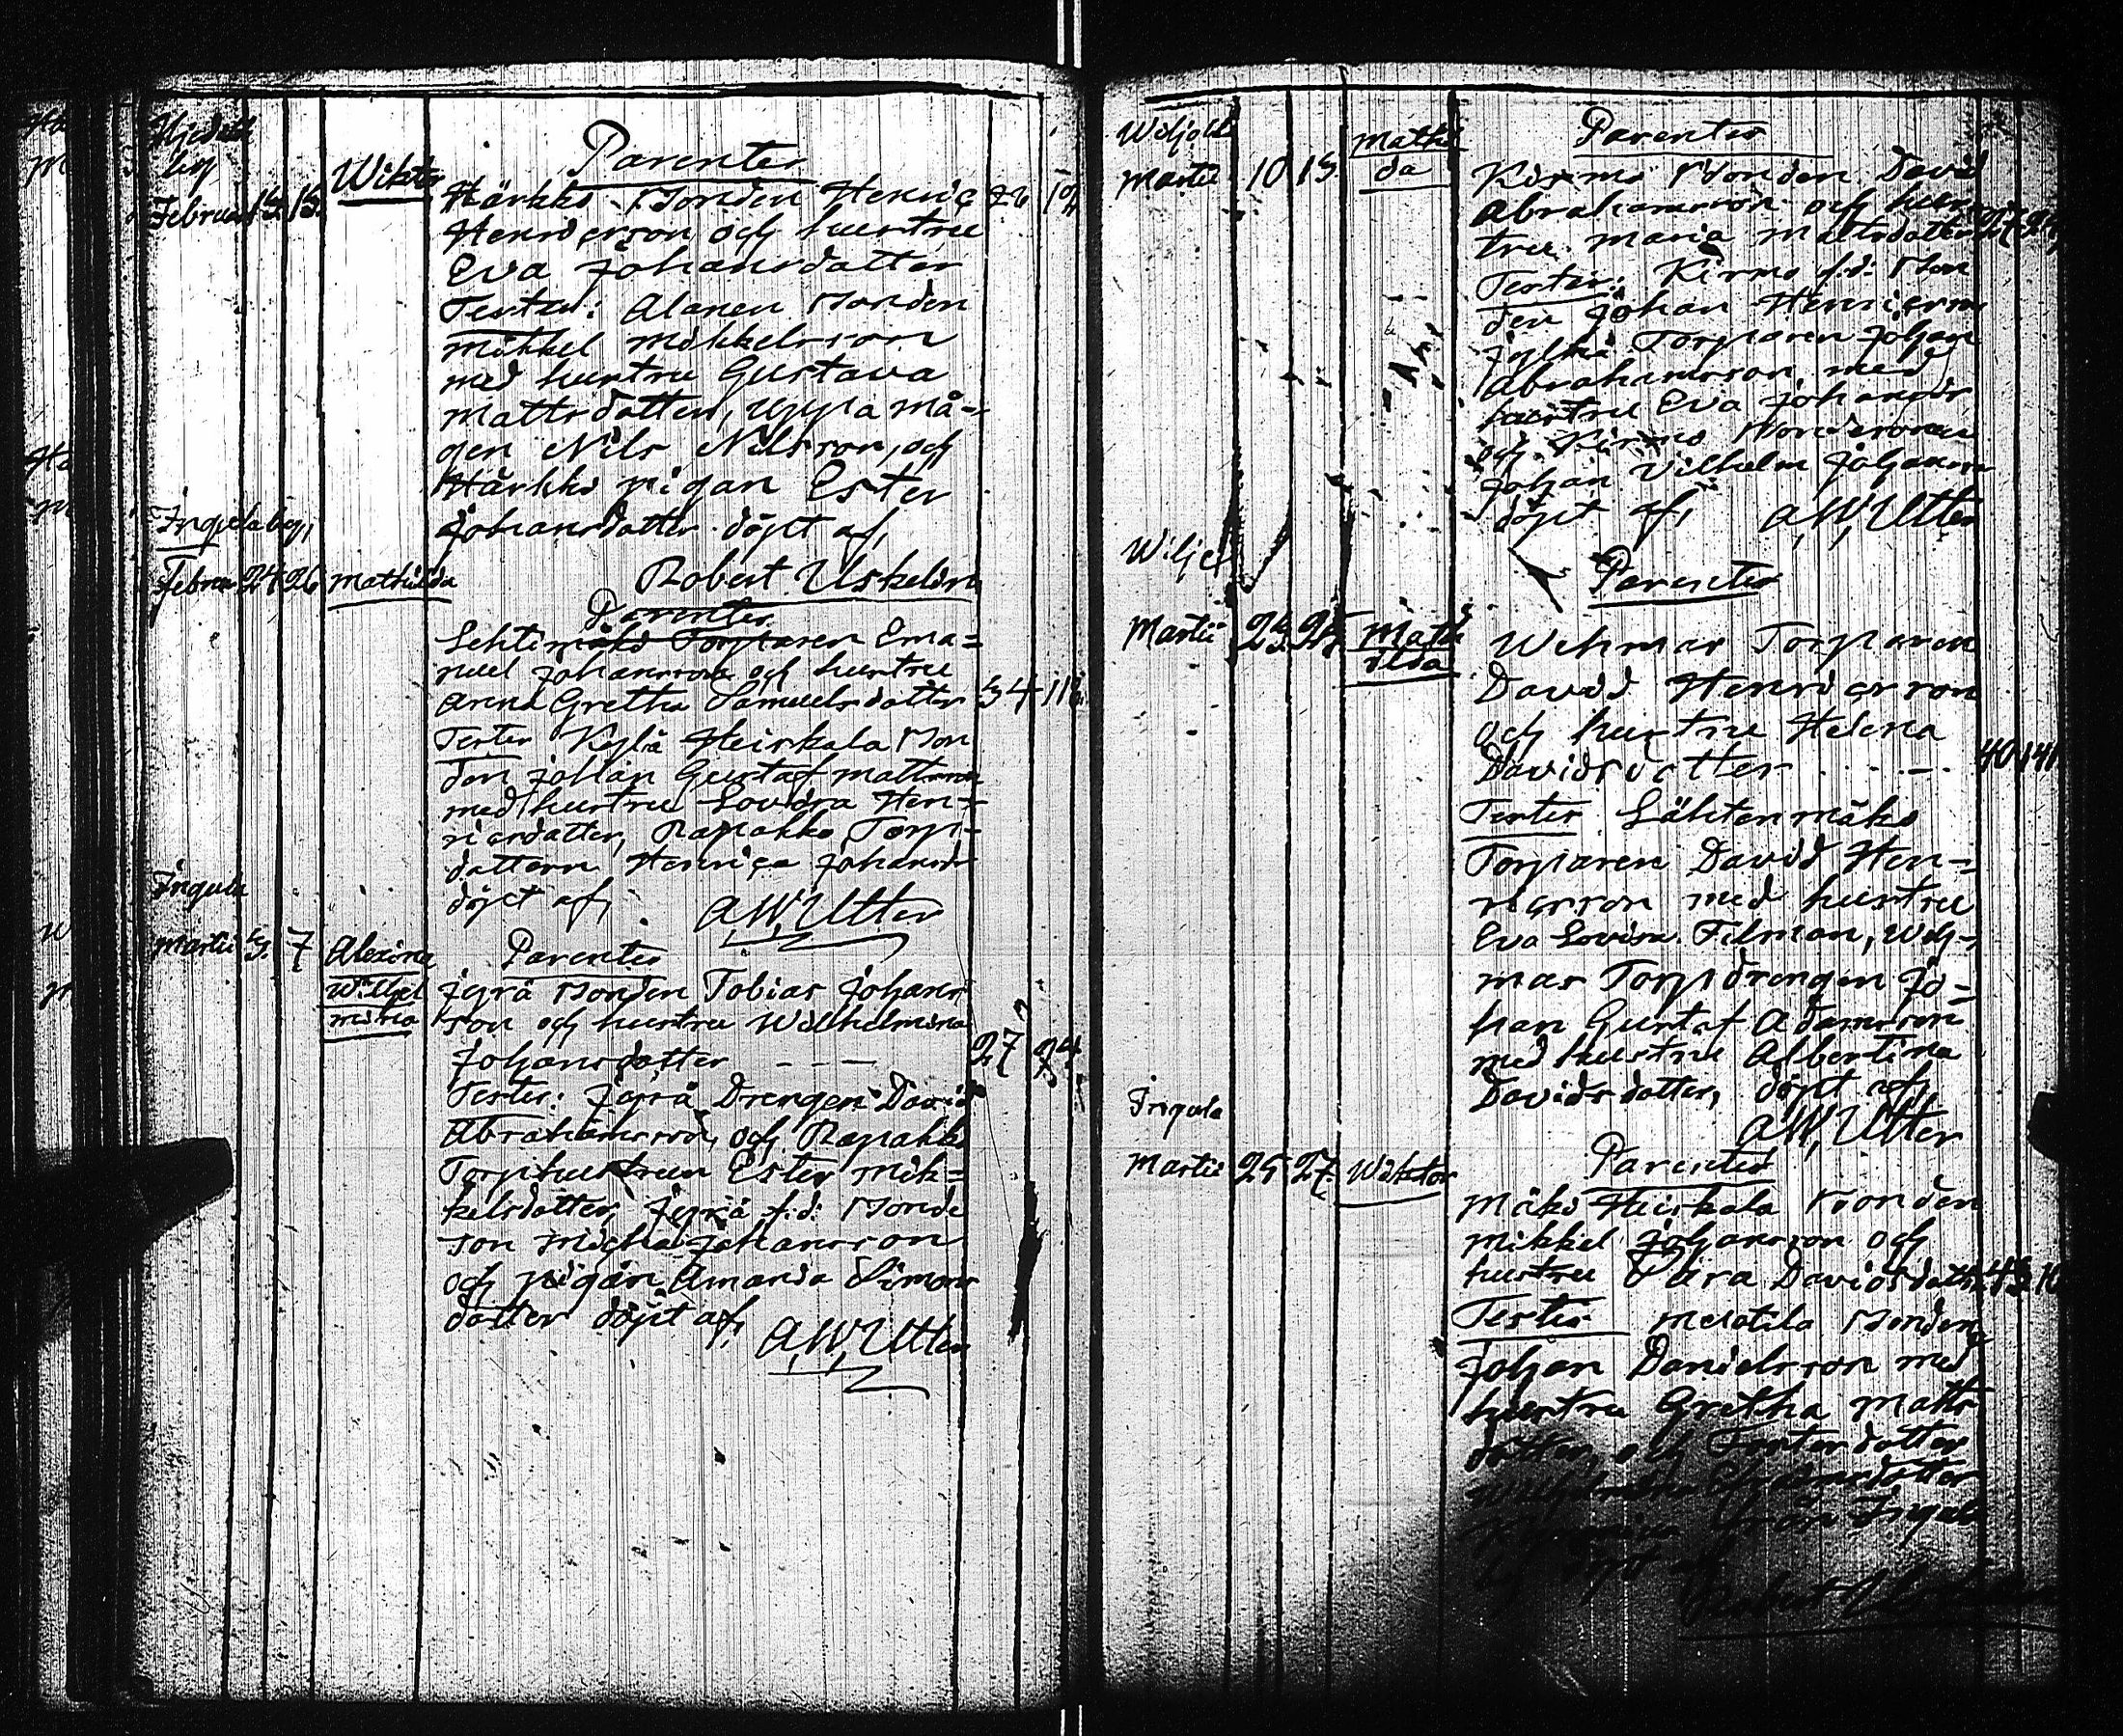 Parenter
Wiktor
Härkko Bonden Henric
Februar 13. 15.
Henricsson och hustru
Eva Johansdatter
Tester: Alanen Bonden
Mikkel Mikkelsson
med hustru Gustava
Mattsdatter, Uppa må-
gen Nils Nilsson, och
Härkko pigan Ester
Johansdatter döpt af,
Ingela by,
Februa 24 26 Mathilda
Robert Uskelin
Parenter
Lehtimäki Torparen Ema=
nuel Johansson och hustru
Anna Gretha Samuelsdotter 34
Tester Kylä Heiskala Bon
den Johan Gustaf Mattsson
med hustru Lovisa Hen-
ricsdatter, Rapakko Torp-
dattern Henrica Johansdr
döpt af,
A,W,Utter
Ingela
Martii 3. 7 Alexina
Wilhel
mina
Parenter
Jyrä Bonden Tobias Johans
son och hustru Wilhelmina
Johansdotter - - - 27 24
Tester: Jyrä Drengen David
Abrahamsson, och Rapakko
Torphustrun Ester Mik=
kelsdotter, Jyrä f.d. Bonde
son Michel Johansson
och pigan Amanda Simons
dotter döpt af,
A,W,Utter
Martii 10 13. Mathil
da
Parenter
Kirmo Bonden David
Abrahamsson och hus
tru Maria Mattsdotter
Tester: Kirmo f.d. Bon
den Johan Henricsson
Torparen Johan
Abrahamsson med
hustru Eva Johansdr
och Kirmo Bondesonen
Johan Vilhelm Johansson
döpt af, A,W,Utter
Martii 23. 25. Math
ilda
Parenter
Wehmas Torparen
David Henricsson
och hustru Helena
Davidsdotter 40 41
Tester Lähtenmäki
Torparen David Hen=
ricsson med hustru
Eva Lovisa Filman, Weh-
mas Torpdrengen Jo=
han Gustaf Adamsson
med hustru Albertina
Davidsdotter, döpt af,
A,W,Utter
Ingela
Martii 25 27. Wiktor
Parenter
Mäki Heiskala Bonden
Mikkel Johansson och
hustru Davidsdotter
Tester Bonden
Johan Danielsson med
hustru Gretha Matts
dotter, och Fosterdotter
från Ingela
by döpt af